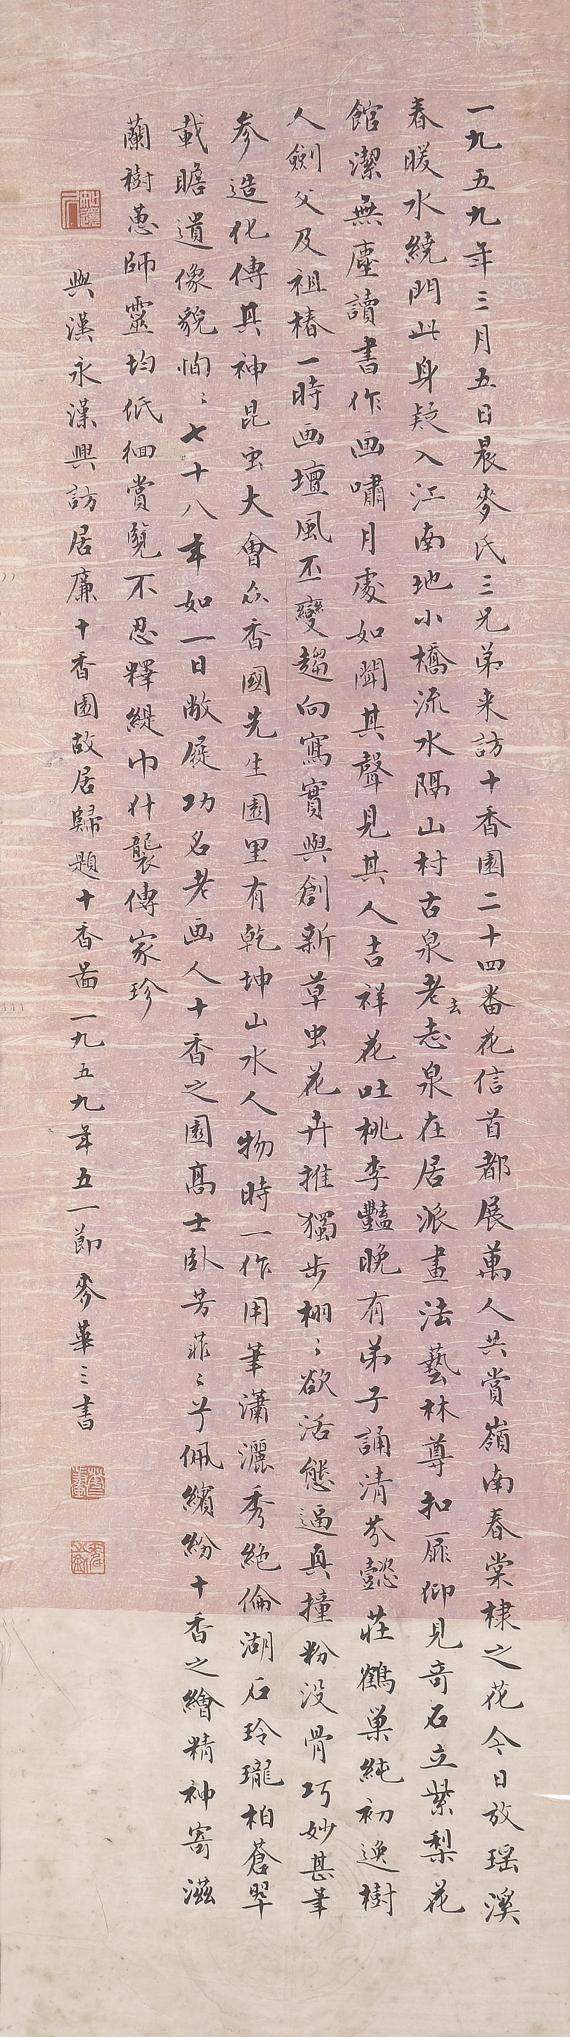 一九五九年三月五日晨麥氏三兄弟来訪十香園二十四番花信首都展萬人共賞嶺南春棠棣之花今日放瑶溪
春暖水繞門此身疑入江南地小橋流水隔山村古泉老去志泉在居派畫法藝林尊扣扉仰見奇石立紫梨花
館潔無塵讀書作画嘯月處如聞其聲見其人吉祥花吐桃李豔晚有弟子誦清芬懿莊鶴巢純初逸樹
人劍父及祖椿一時画壇風丕變趨向寫實與創新草虫花卉推獨步栩〻欲活態逼真撞粉没骨巧妙甚筆
参造化傳其神昆虫大會众香國先生園里有乾坤山水人物時一作用筆瀟灑秀絶倫湖石玲瓏柏蒼翠
載瞻遺像貌恂〻七十八年如一日敝屣功名老画人十香之園高士卧芳菲〻兮佩繽紛十香之繪精神寄滋
蘭樹蕙師靈均低徊賞覽不忍釋緹巾什襲傳家珍
與漢永漢興訪居廉十香園故居歸題十香畵一九五九年五一節麥華三書